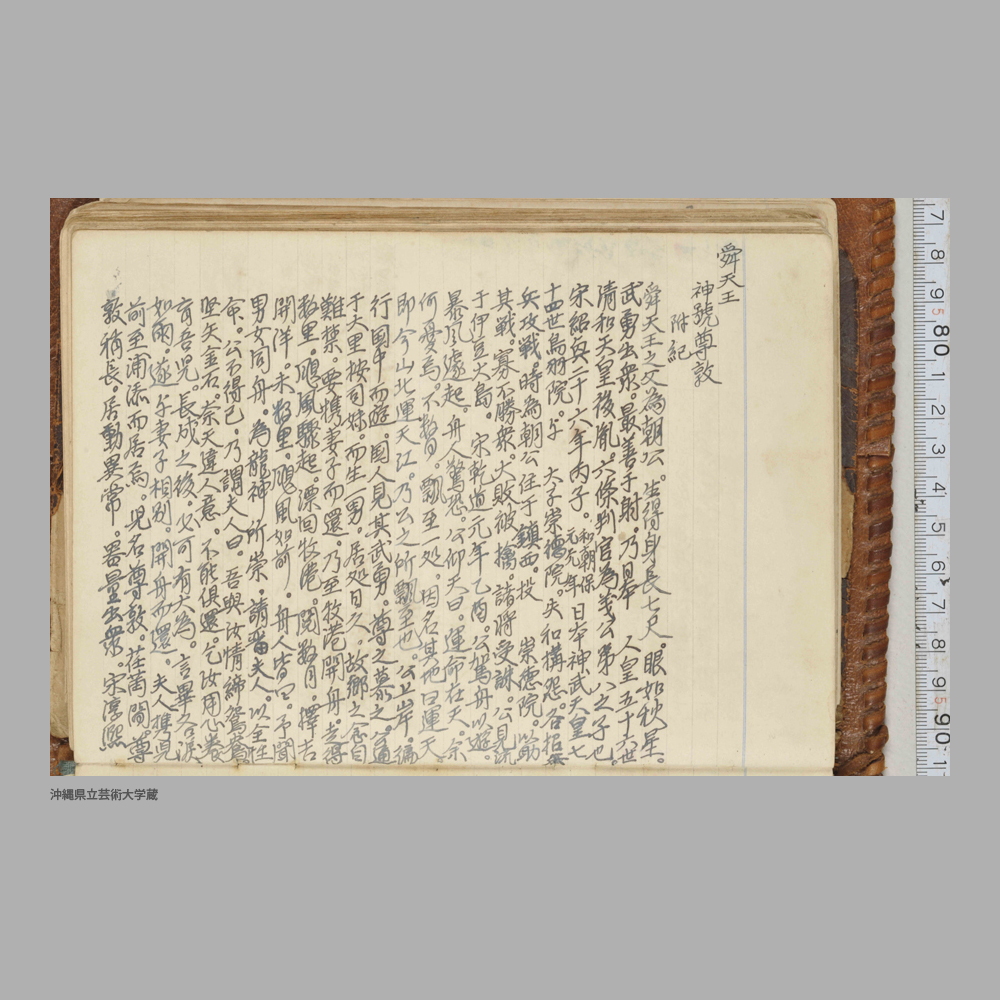 舜天王
神號尊敦
附紀
舜天王之父為朝公。生得身長七尺。眼如秋星。
武勇出衆。最善于射。乃日本 人皇五十六世
清和天皇後胤。六條判官為義公第八之子也。
宋紹興二十六年丙子。和朝保元元年日本神武天皇七
十四世鳥羽院。与 太子崇德院。失和構怨各招
兵攻戦。時為朝公在于鎮西。投 崇德院。助
其戦。寡不勝衆。大敗被擒。諸將受誅。公見流
于伊豆大島。 宋乾道元年乙酉。公駕舟以遊。
暴風遽起。舟人驚恐。公仰天曰。運命在天。余
何憂焉。不数日。飄至一処。因名其地曰運天
即今山北運天江。乃公之所飄至也。公上岸。徧
行国中而遊。国人見其武勇。尊之慕之。公通
于大里按司妹。而生一男。居処日久。故鄉之念自
難禁。要携妻子而還。乃至牧港開舟。走得
数里。颶風驟起。漂回牧港。閲数月。擇吉
開洋。未数里。颶風如前。舟人皆曰。予聞
男女同舟。為龍神所祟。請留夫人。以全性
命。公不得已。乃謂夫人曰。吾與汝情締鴛鴦
堅矢金石。奈天違人意。不能俱還。乞汝用心養
育吾児。長成之後。必可有大為。言畢各淚
如雨。遂与妻子相别。開舟而還。夫人携児
前至浦添而居焉。児名尊敦。荏苒間。尊
敦稍長。居動異常。器量出衆。宋淳熙
7 8 9 5 80 1 2 3 4 5 6 7 8 9 5 90 1
沖縄県立芸術大学蔵